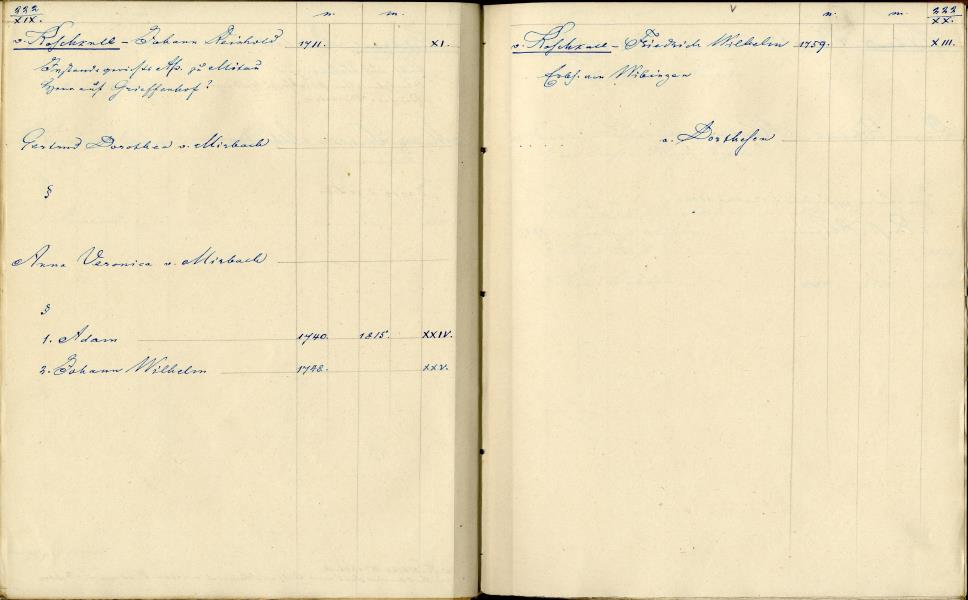 222
XIX.
n. m.
v. Koschkull – Johann Reinhold 1711. XI.
Instanzgerichts Ass. zu Mitau
Herr auf Grieffenhof?
Gertrud Dorothea v. Mirbach
§
Anna Veronica v. Mirbach
§
1. Adam 1740. 1815. XXIV.
2. Johann Wilhelm 1748. XXV.
222
XX.
n. m.
v. Koschkull – Friedrich Wilhelm 1759. XIII.
Erbh. von Wibingen
v. Dorthesen